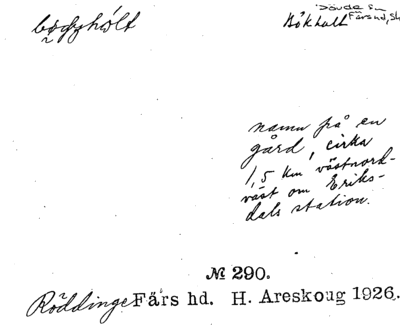 Bökhult
Färs hd, Sk
namn på en
gård, cirka
1,5 km västnord-
väst om Eriks-
dals station.
№ 290.
Röddinge Färs hd. H. Areskoug 1926.